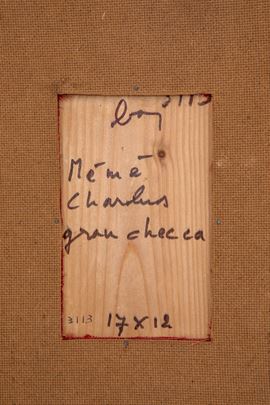 3113
baj
Mémé
Charlus
gran checca
3113 17x12